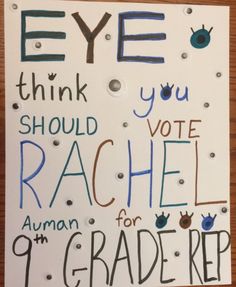 EYE
think you
SHOULD VOTE
RACHEL
Auman for
9th GRADE REP